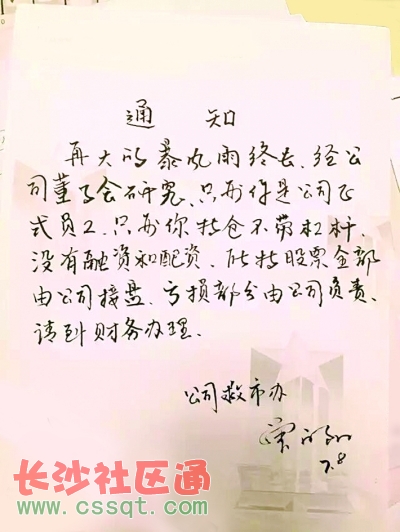 通 知
再大的暴风雨终去、经公
司董事会研究、只要你是公司正
式员工、只要你持仓不带杠杆、
没有融资和配资、所持股票全部
由公司接盘、亏损部分由公司负责、
请到财务办理.
公司救市办
7.8
长沙社区通
www.cssqt.com